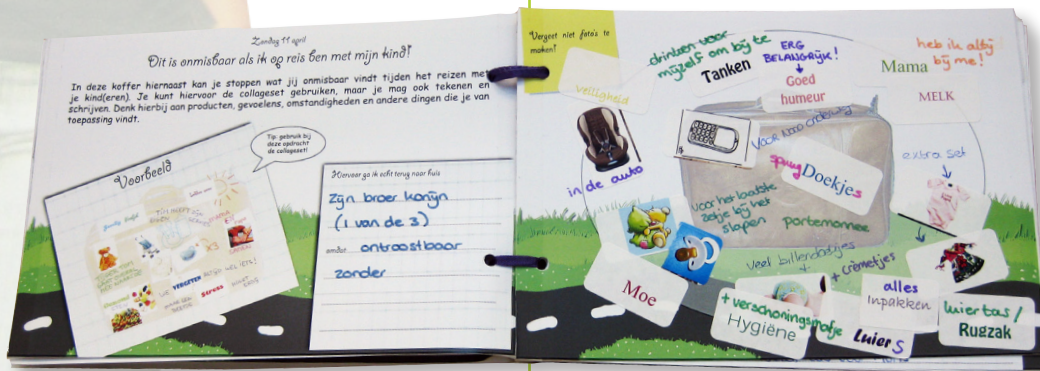 Zondag 11 april
Dit is onmisbaar als ik op reis ben met mijn kind!
In deze koffer hiernaast kan je stoppen wat jij onmisbaar vindt tijden het reizen met
je kind(eren). Je kunt hiervoor de collageset gebruiken, maar je mag ook tekenen en
schrijven. Denk hierbij aan producten, gevoelens, omstandigheden en andere dingen die je van
toepassing vindt.
Tip: gebruik bij
deze opdracht
de collageset!
Voorbeeld
VERGETEN
Stress
Hiervoor ga ik echt terug naar huis
Zijn broer konijn
(1 van de 3)
zonder ontroostbaar
zonder
Vergeet niet foto's te
maken!
Veiligheid
drinken voor
mijzelf om bij te
Tanken
ERG
BELANGRIJK!
Goed
humeur
heb ik altijd
bij me!
Mama
MELK
in de auto
voor
spuug Doekjes
extra set
voor het laatste
zetje bij het
slapen
portemonnee
veel billendoekjes
+
+ crèmetjes
Moe
+ verschoningsmatje
Hygiëne
alles
Inpakken
Luiers
luiertas/
Rugzak